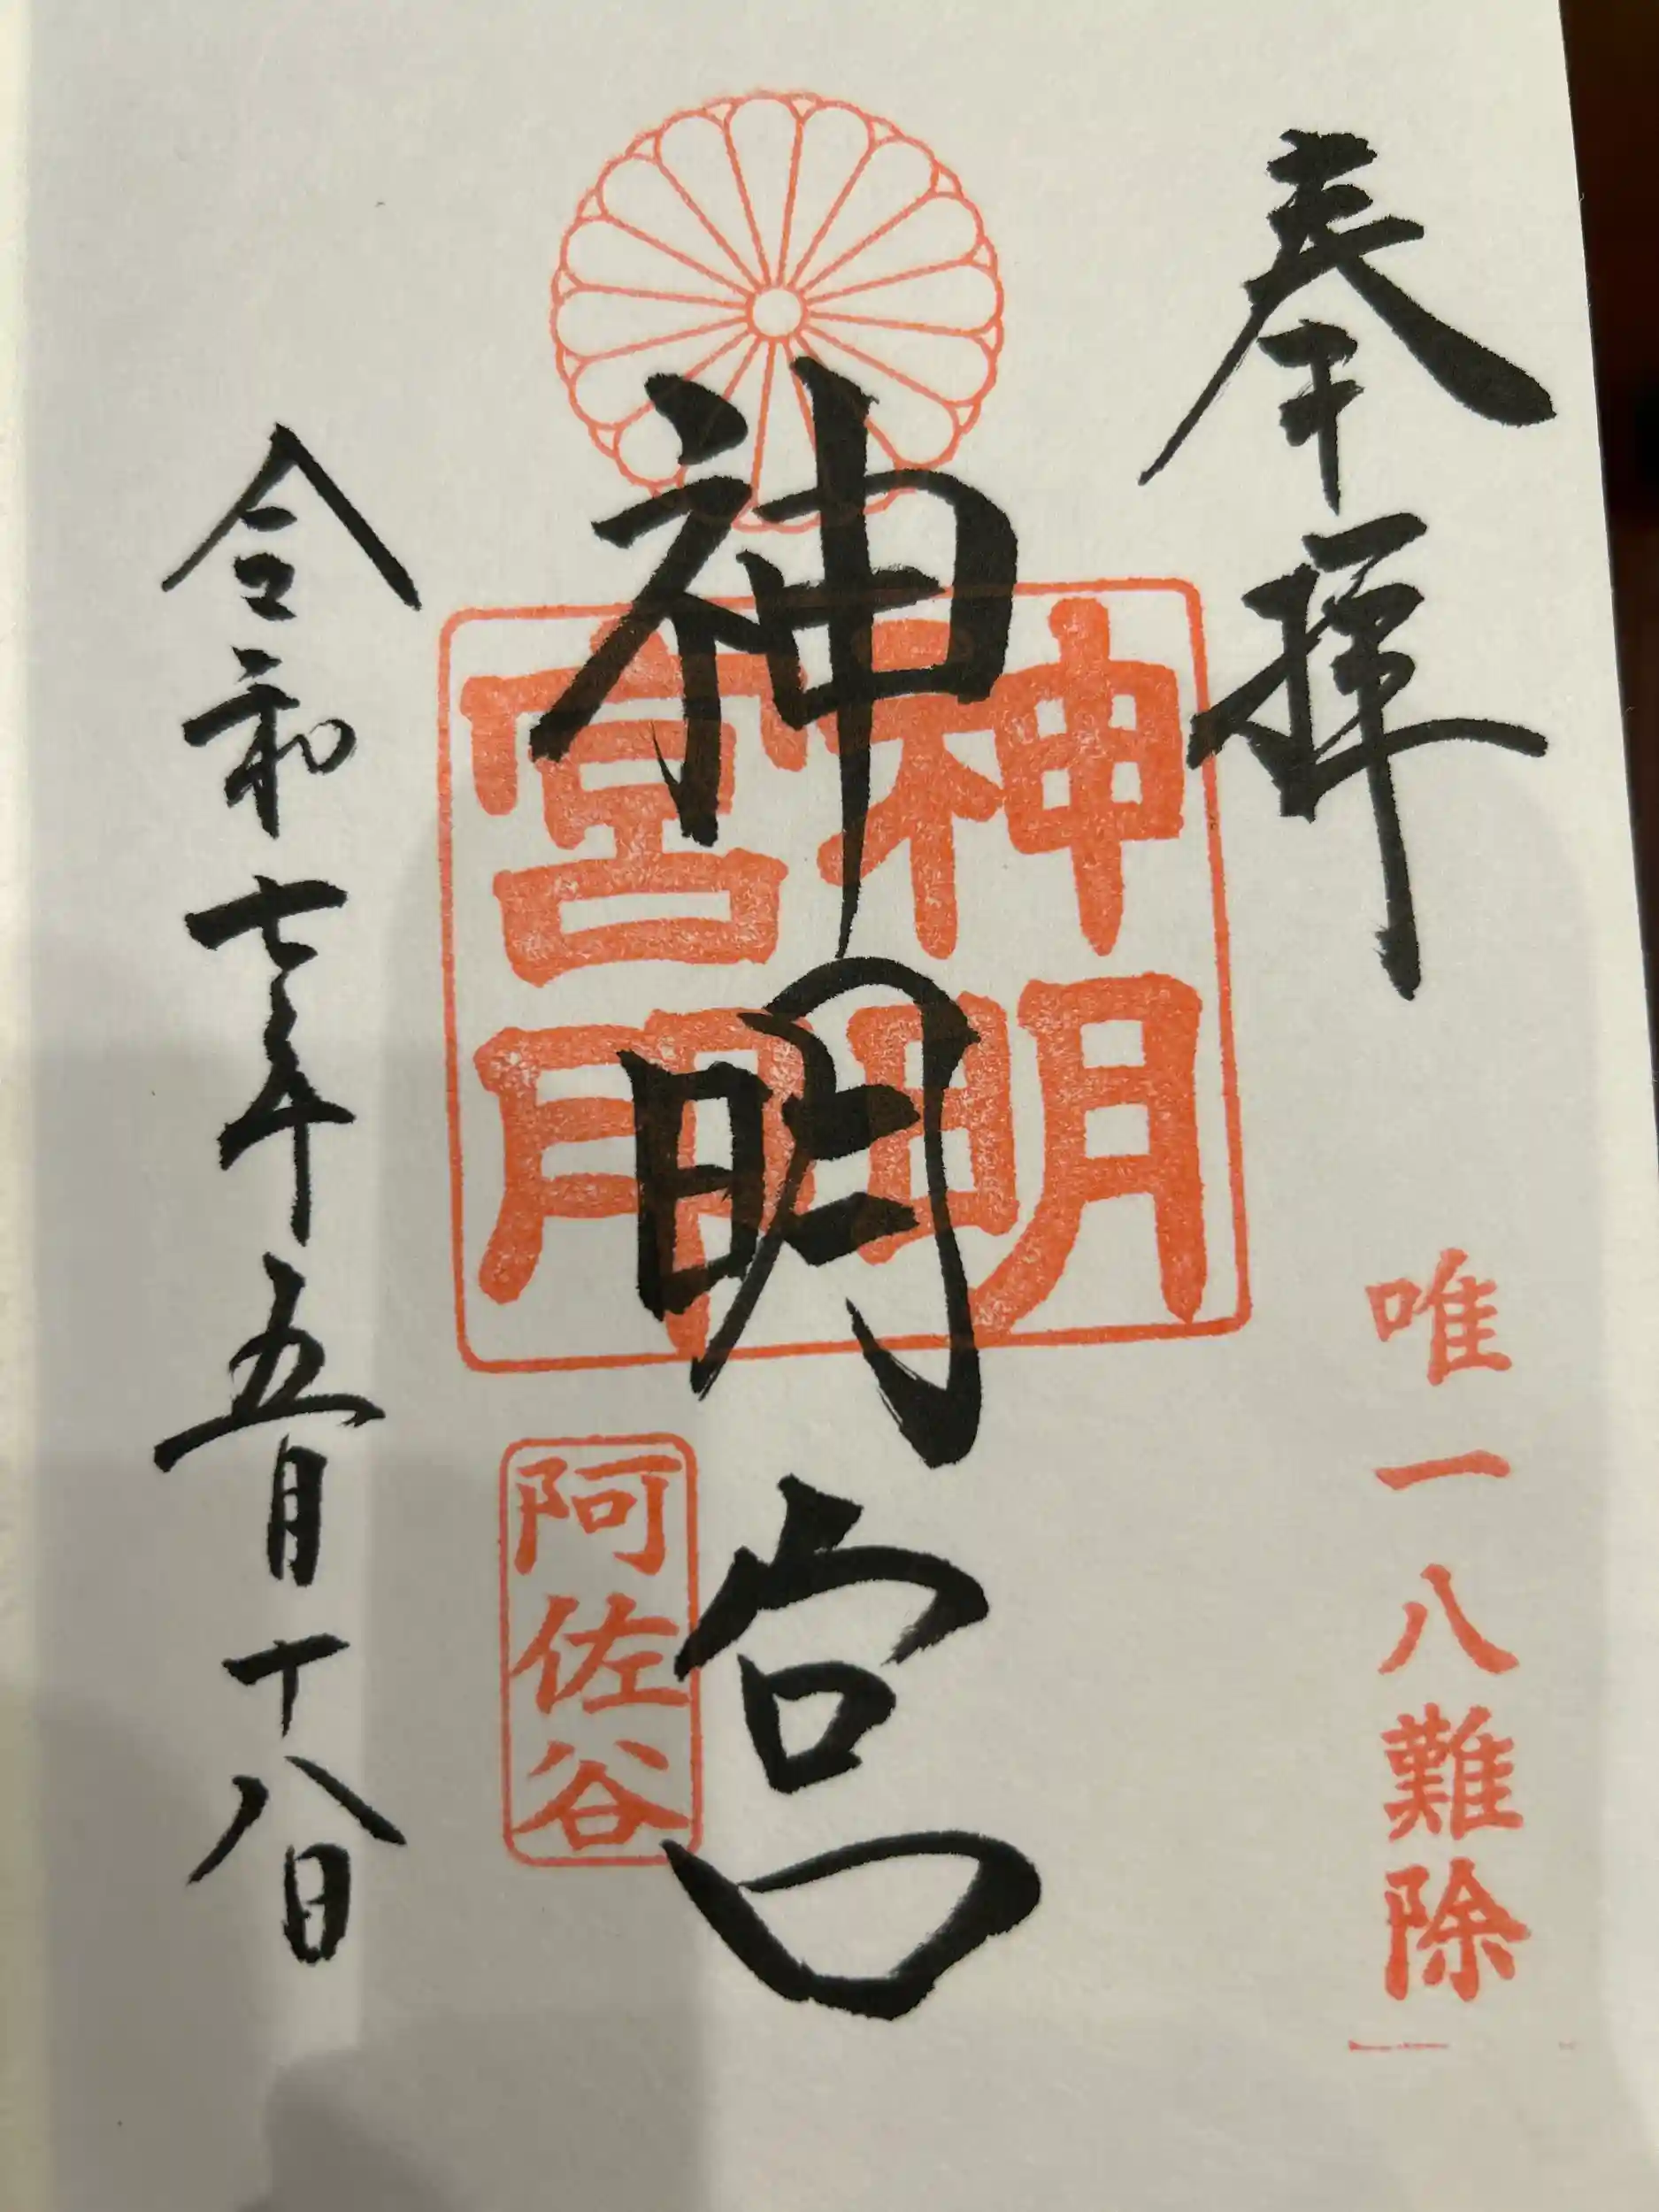 奉拝
唯一八難除
神明宮
神明宮用
阿佐谷
令和七年五月十八日